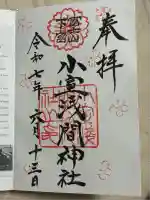 奉拝
小室浅間神社
令和七年六月十三日